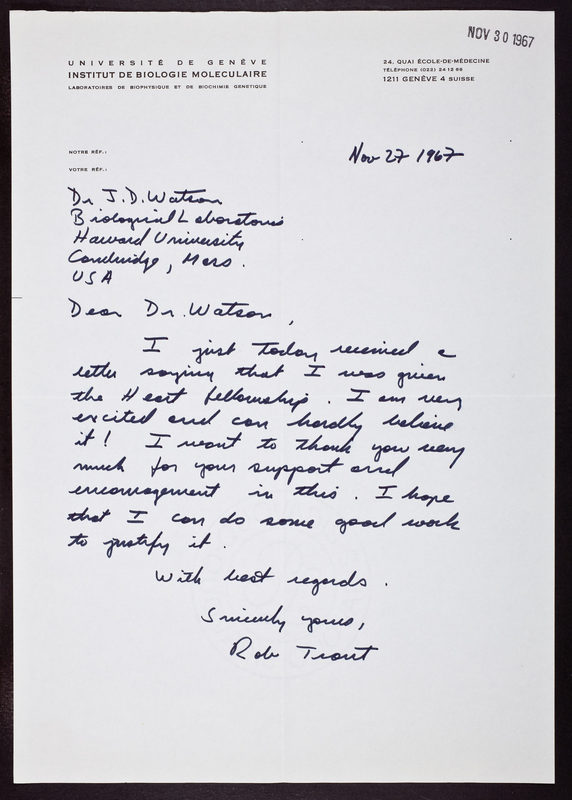 NOV 30 1967
UNIVERSITÉ DE GENÈVE
INSTITUT DE BIOLOGIE MOLECULAIRE
LABORATOIRES DE BIOPHYSIQUE ET DE BIOCHIMIE GENETIQUE
24, QUAI ÉCOLE-DE-MÉDECINE
TÉLÉPHONE (022) 24 12 66
1211 GENÈVE 4 SUISSE
NOTRE RÉF.:
VOTRE RÉF.:
Nov 27 1967
Dr J.D. Watson
Biological Laboratories
Harvard University
Cambridge, Mass.
USA
Dear Dr. Watson,
I just today received a
letter saying that I was given
the Heart fellowship. I am very
excited and can hardly believe
it! I want to thank you very
much for your support and
encouragement in this. I hope
that I can do some good work
to justify it.
With best regards.
Sincerely yours,
Rob Traut